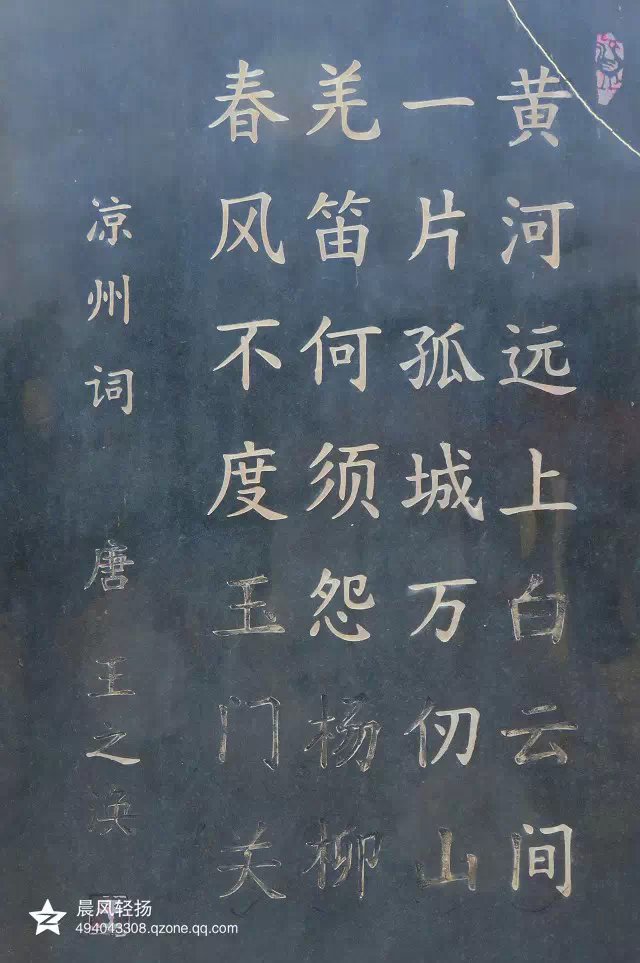 黄河远上白云间
一片孤城万仞山
羌笛何须怨杨柳
春风不度玉门关
凉州词 唐 王之涣
晨风轻扬
494043308.qzone.qq.com